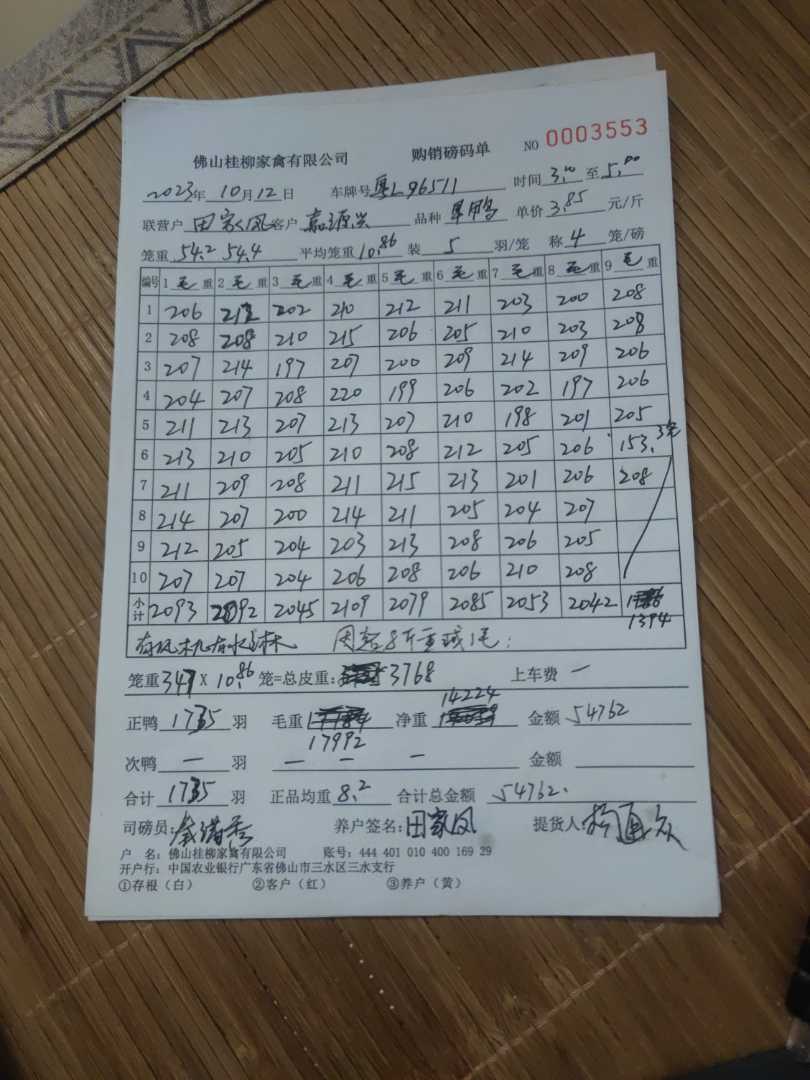 佛山桂柳家禽有限公司 购销磅码单 NO 0003553
2023年 10月12日 车牌号 粤L96511 时间 3.00 至 5.00
联营户 田家凤 客户 嘉源兴 品种 旱鸭 单价 3.85 元/斤
笼重 54.2 54.4 平均笼重 10.86 装 5 羽/笼 称 4 笼/磅
编号 1 毛 重 2 毛 重 3 毛 重 4 毛 重 5 毛 重 6 毛 重 7 毛 重 8 毛 重 9 毛 重
1 206 212 202 210 212 211 203 200 208
2 208 208 210 215 206 205 210 203 208
3 207 214 197 207 200 209 214 209 206
4 204 207 208 220 199 206 202 197 206
5 211 213 207 213 207 210 198 201 205
6 213 210 205 210 208 212 205 206 153. 3笼
7 211 209 208 211 215 213 201 206 208
8 214 207 200 214 211 205 204 207
9 212 205 204 203 213 208 206 205
10 207 207 204 206 208 206 210 208
小计 2093 2092 2045 2109 2079 2085 2053 2042 1394
有风机有水淋
笼重 347 X 10.86 笼=总皮重: 3768 上车费 —
正鸭 1735 羽 毛重 17992 净重 14224 金额 54762
次鸭 — 羽 — — — 金额
合计 1735 羽 正品均重 8.2 合计总金额 54762.
司磅员: 养户签名: 田家凤 提货人:
户 名: 佛山桂柳家禽有限公司 账号: 444 401 010 400 169 29
开户行: 中国农业银行广东省佛山市三水区三水支行
①存根（白） ②客户（红） ③养户（黄）